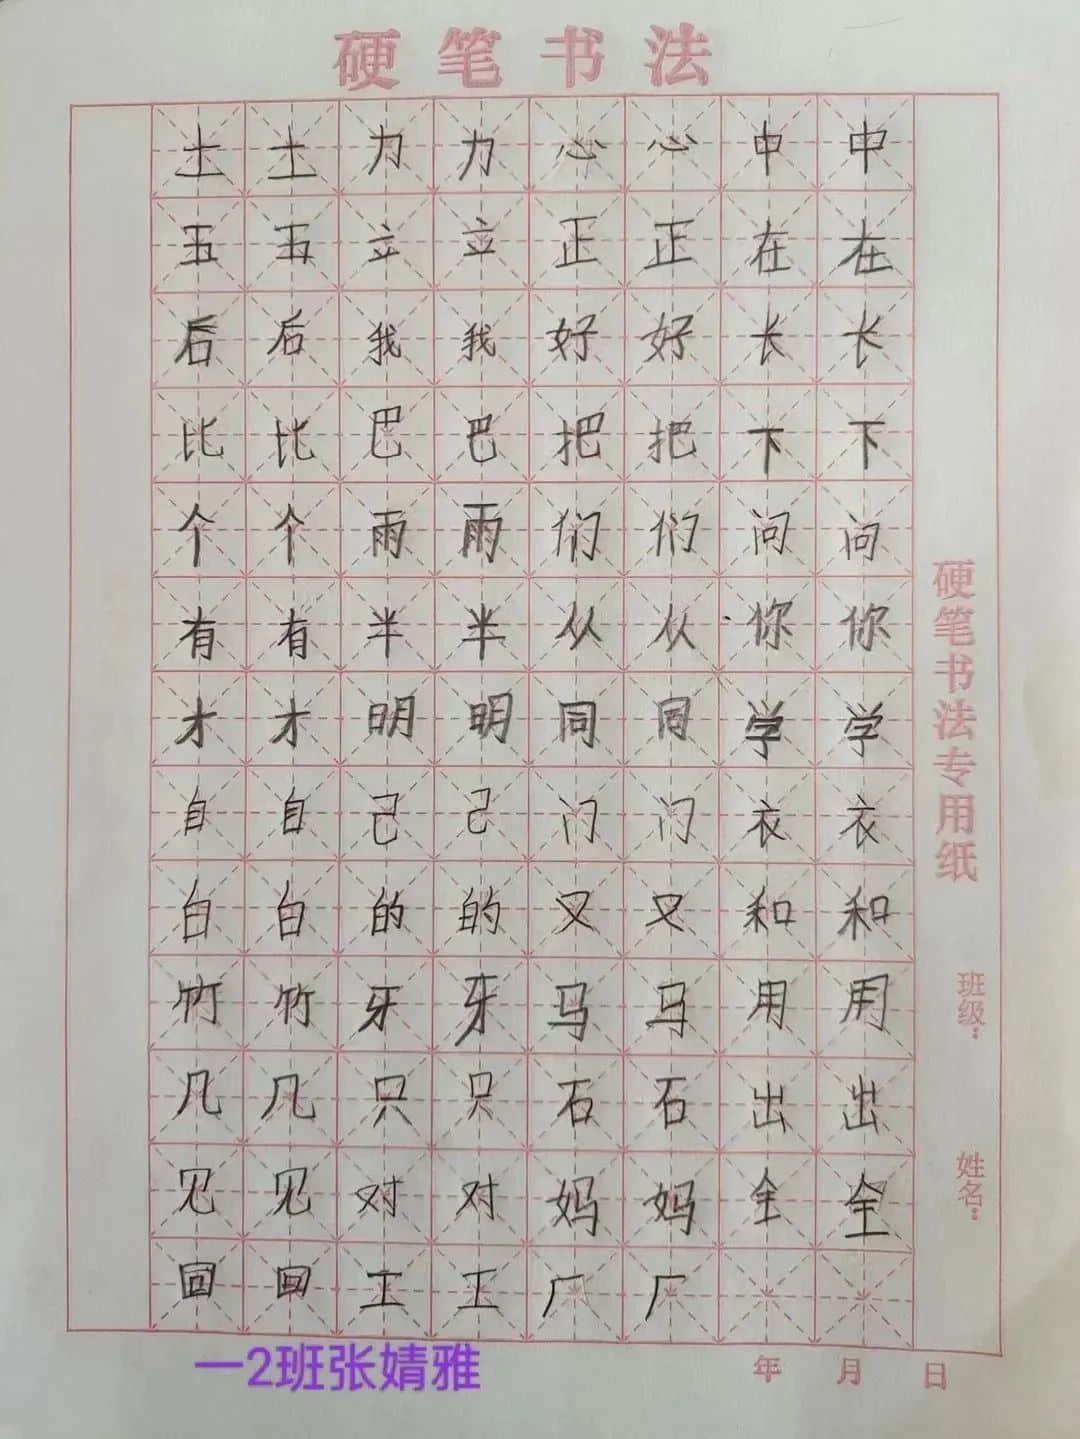 硬笔书法
土土力力心心中中
五五立立正正在在
后后我我好好长长
比比巴巴把把下下
个个雨雨们们问问
有有半半从从你你
才才明明同同学学
自自己己门门衣衣
白白的的又又和和
竹竹牙牙马马用用
几几只只石石出出
见见对对妈妈全全
回回工工厂厂
硬笔书法专用纸
班级：
姓名：
年 月 日
一2班张婧雅